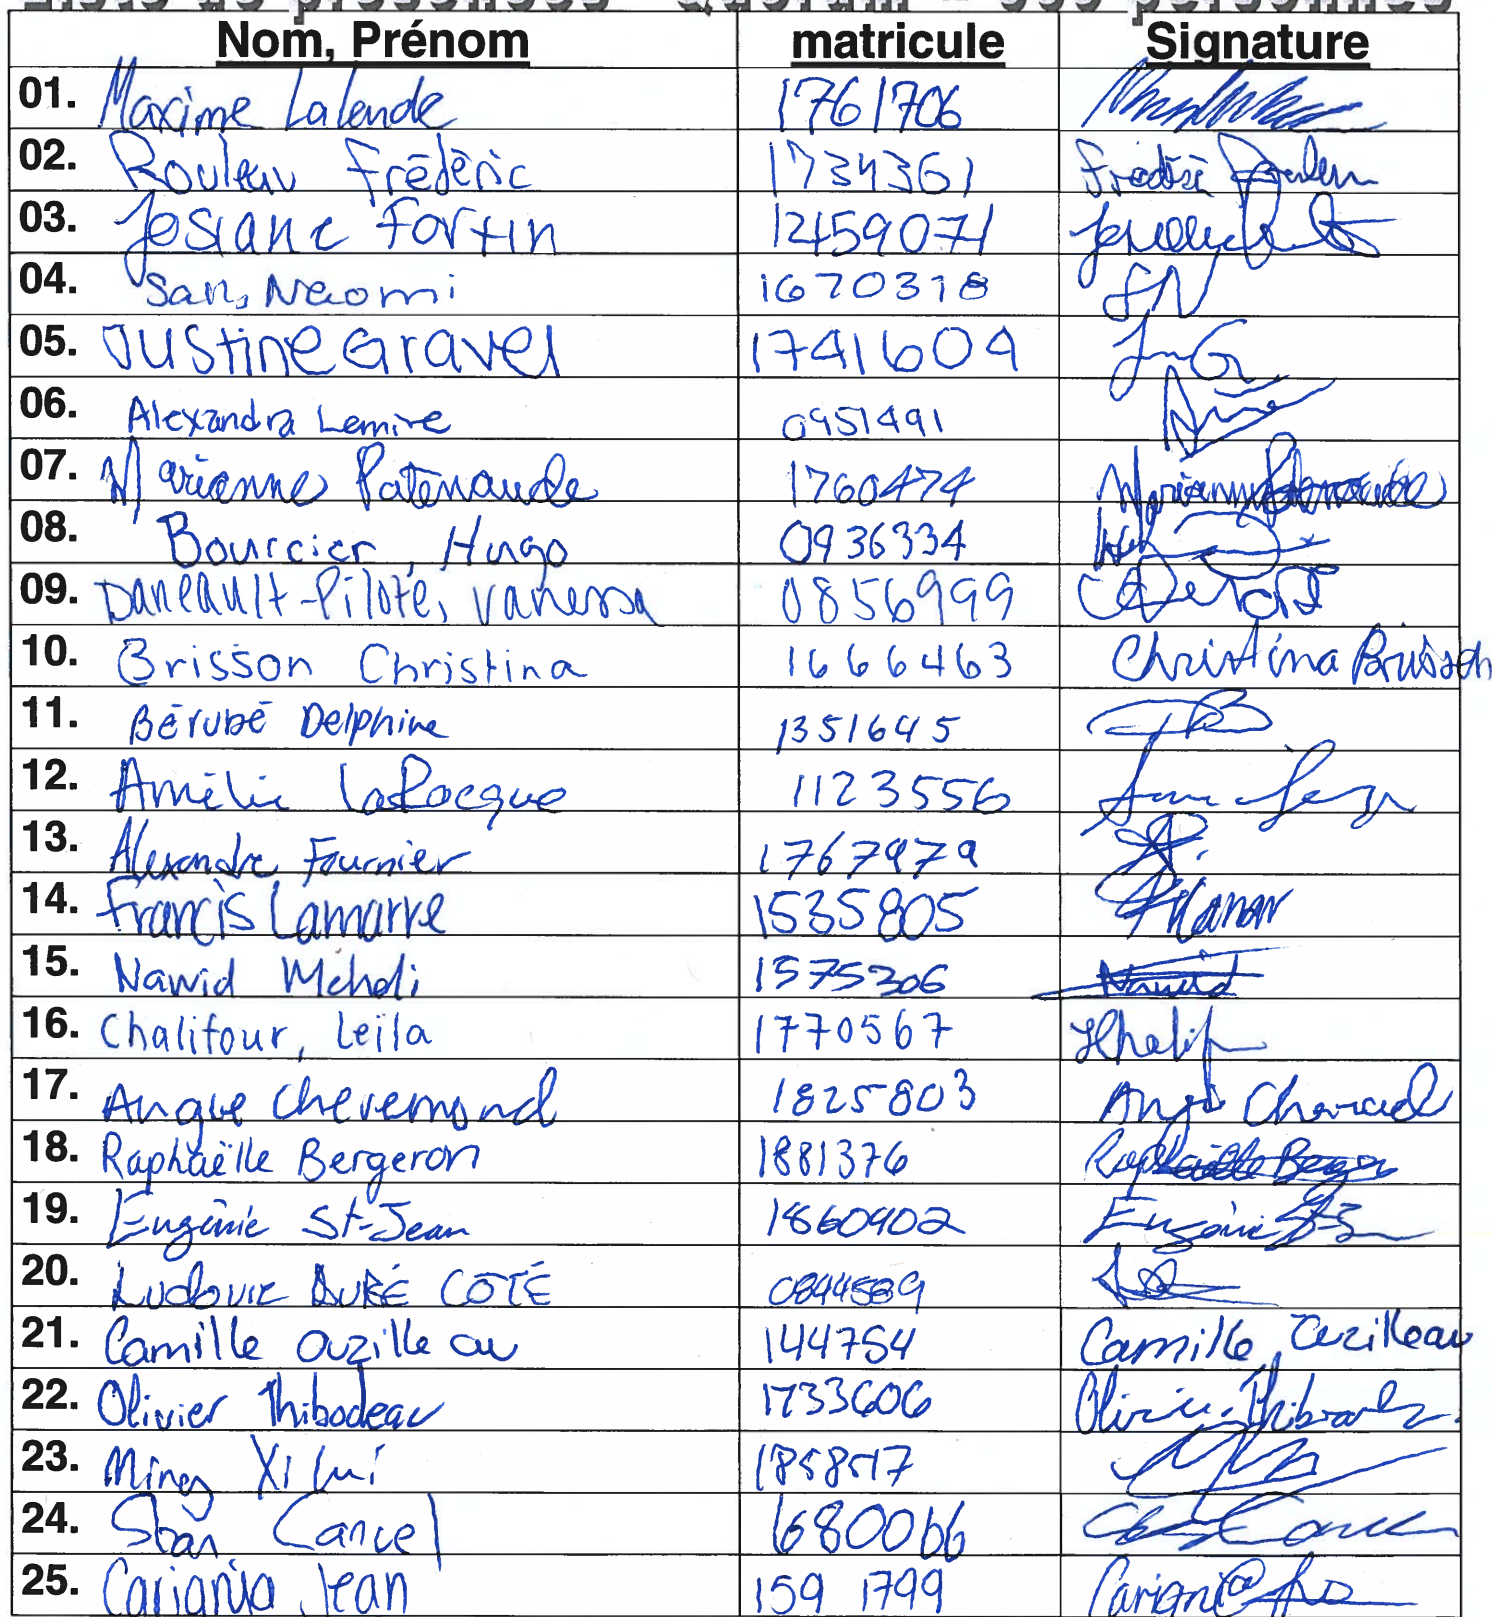 Liste de présences - Quorum - 500 personnes
Nom, Prénom matricule Signature
01. Maxime Lalande 1761706
02. Rouleau Frédéric 1734361
03. Josiane Fortin 12459071
04. San, Naomi 1670318 SN
05. Justine Gravel 1741604
06. Alexandra Lemire 0951491
07. Marianne Patenaude 1760474 Marianne Patenaude
08. Bourcier, Hugo 0936334
09. Daneault-Pilote, Vanessa 0856999
10. Brisson Christina 1666463 Christina Brisson
11. Bérubé Delphine 1351645
12. Amélie LaRocque 1123556
13. Alexandre Fournier 1767979
14. Francis Lamarre 1535805
15. Nawid Mehdi 1575306 Nawid
16. Chalifour, Leïla 1770567
17. Angue Cheremond 1825803
18. Raphaëlle Bergeron 1881376
19. Eugénie St-Jean 1860902
20. Ludovic DUBÉ CÔTÉ 0844589
21. Camille Ouzilleau 144754 Camille Ouzilleau
22. Olivier Thibodeau 1733606
23. Ming Xi 1858517
24. Cancel 1680066
25. Jean 159 1799